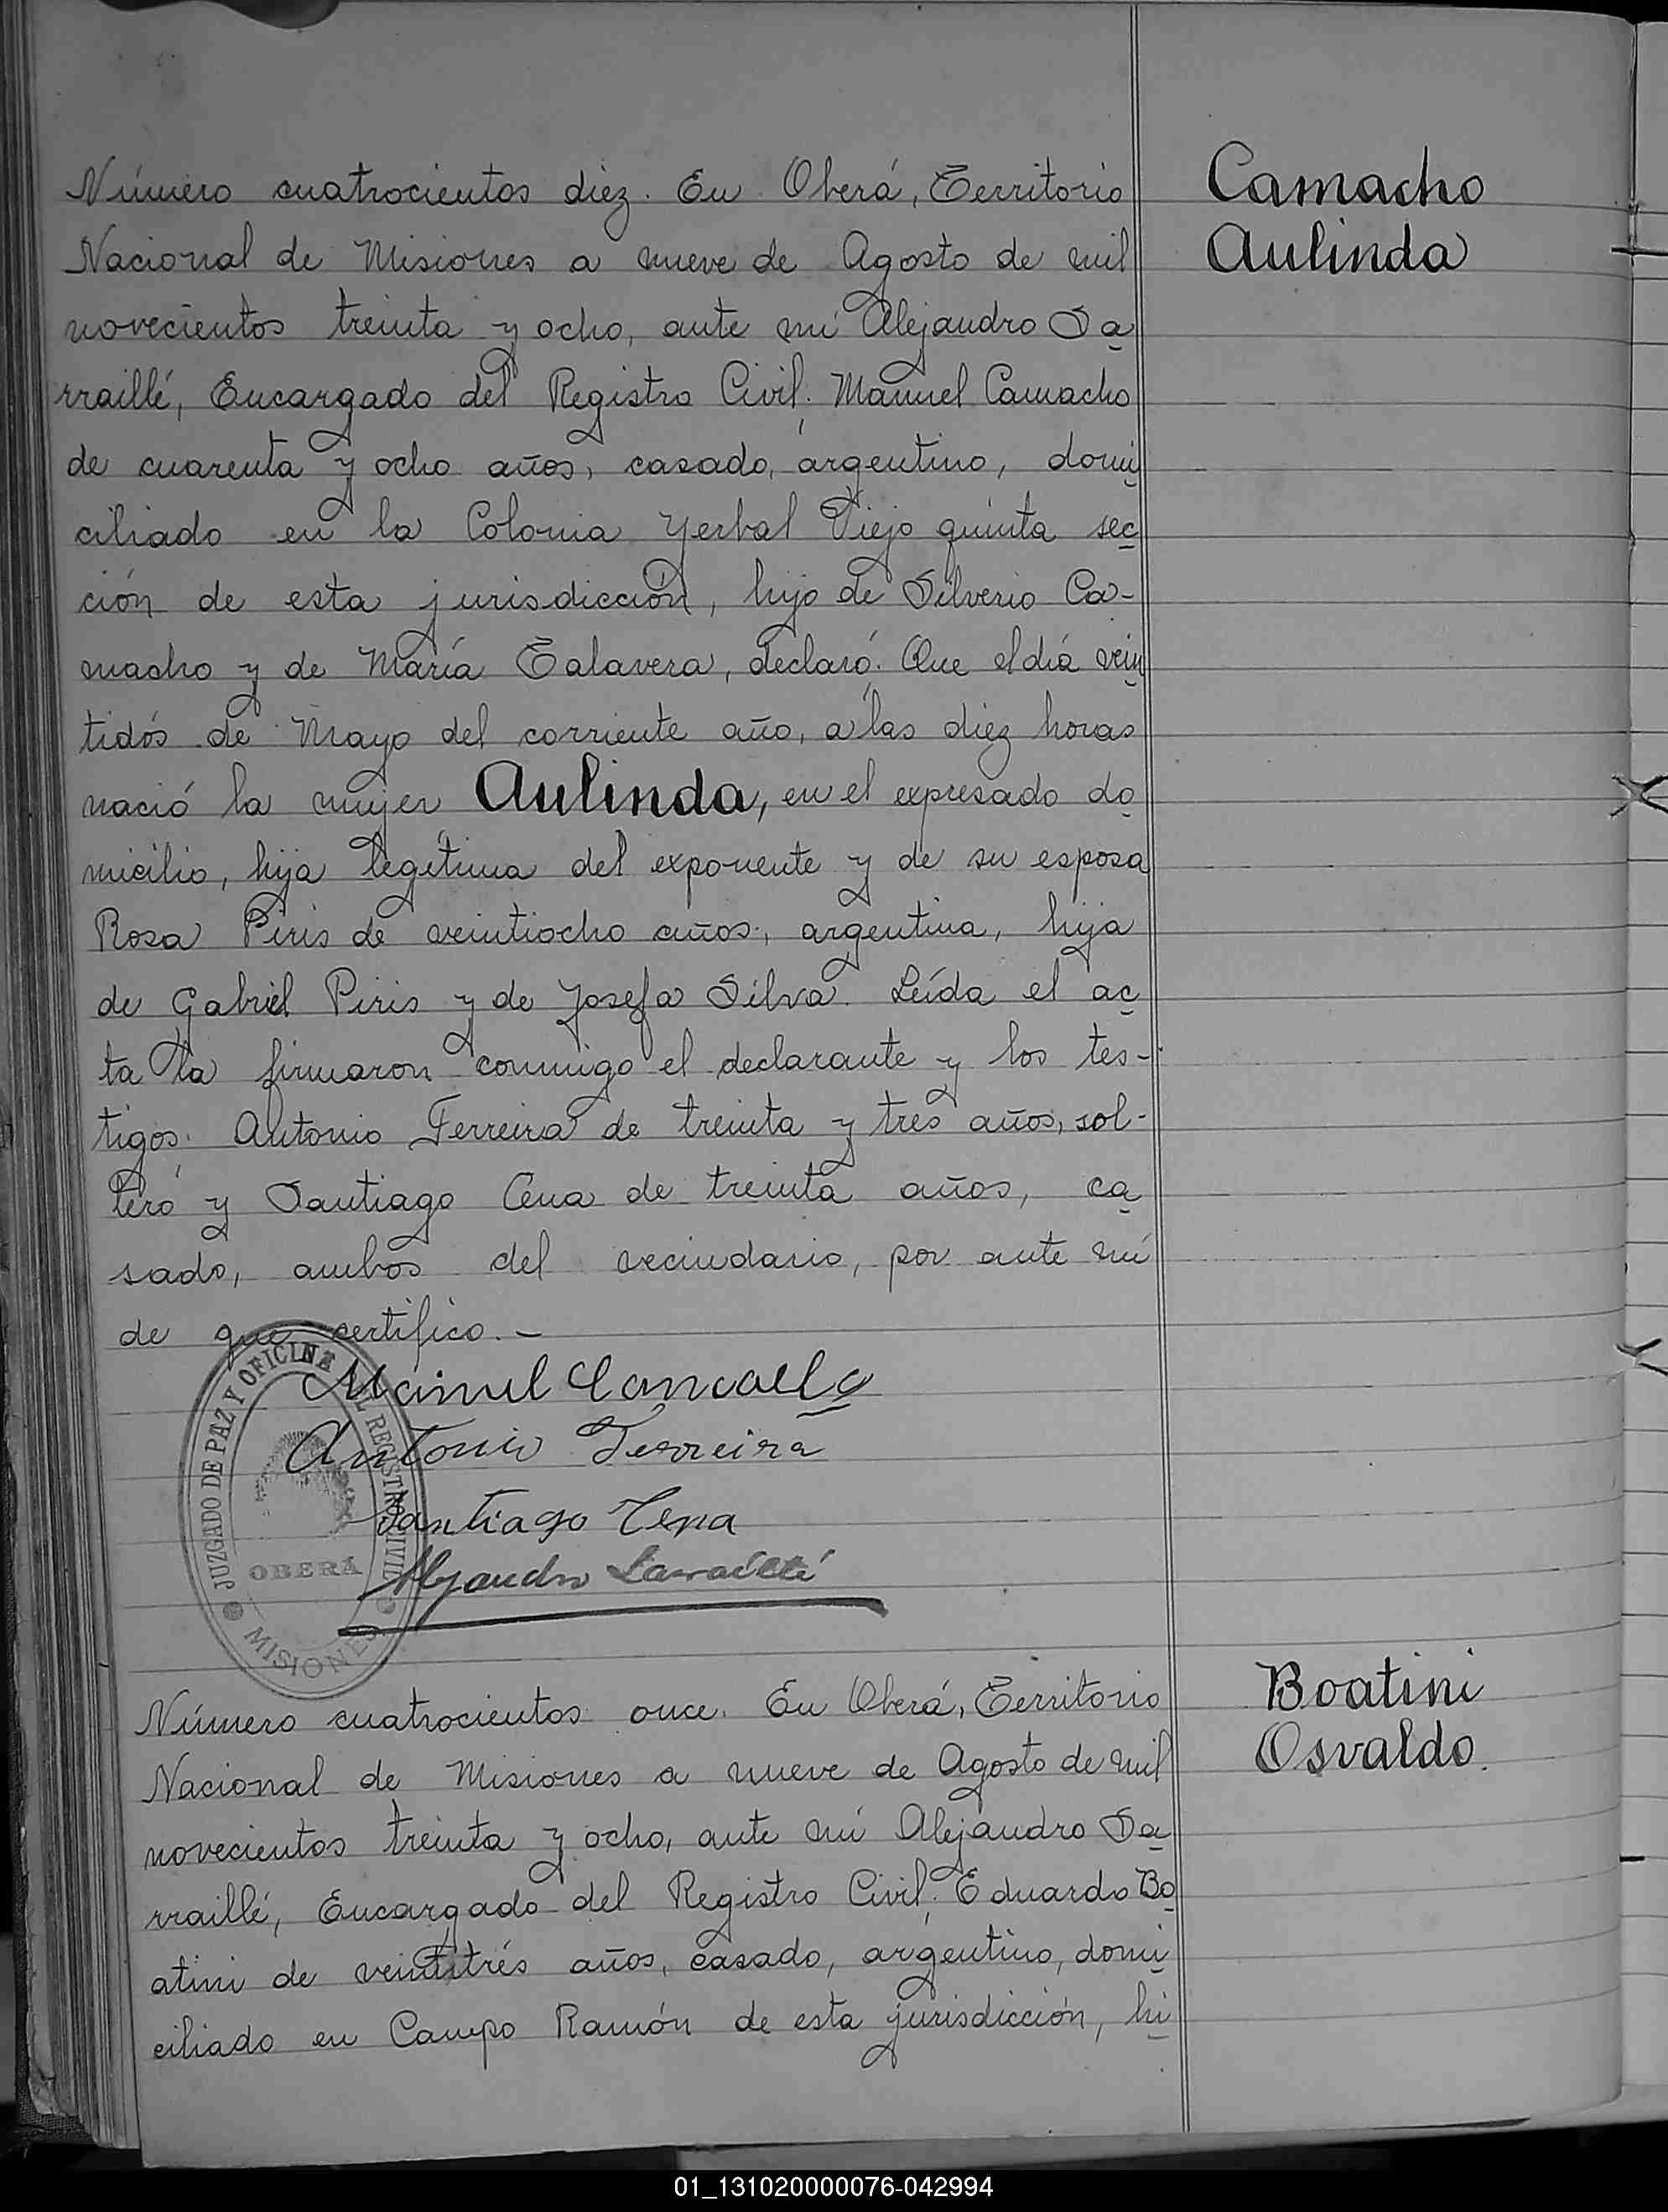 Camacho
Aulinda
Número cuatrocientos diez. En Oberá, Territorio
Nacional de Misiones a nueve de Agosto de mil
novecientos treinta y ocho, ante mí Alejandro Sa
rraillé, Encargado del Registro Civil: Manuel Camacho
de cuarenta y ocho años, casado, argentino, domi
ciliado en la Colonia Yerbal Viejo quinta sec
ción de esta jurisdicción, hijo de Silverio Ca-
macho y de María Talavera, declaró: Que el día vein
tidós de Mayo del corriente año, a las diez horas
nació la mujer Aulinda, en el expresado do
micilio, hija legítima del exponente y de su esposa
Rosa Piris de veintiocho años, argentina, hija
de Gabriel Piris y de Josefa Silva. Leída el ac
ta la firmaron conmigo el declarante y los tes-
tigos: Antonio Ferreira de treinta y tres años, sol-
tero y Santiago Cena de treinta años, ca
sado, ambos del vecindario, por ante mí
de que certifico.-
Manuel Camacho
Antonio Ferreira
Santiago Cena
Alejandro Sarraillé
JUZGADO DE PAZ Y OFICINA DEL REGISTRO CIVIL
OBERÁ
MISIONES
Boatini
Osvaldo.
Número cuatrocientos once. En Oberá, Territorio
Nacional de Misiones a nueve de Agosto de mil
novecientos treinta y ocho, ante mí Alejandro Sa
rraillé, Encargado del Registro Civil: Eduardo Bo
atini de veintitrés años, casado, argentino, domi
ciliado en Campo Ramón de esta jurisdicción, hi
01_131020000076-042994